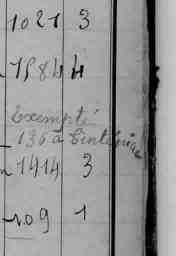 1021 3
1584 4
Exempté
136 a l'intérieur
1414 3
109 1